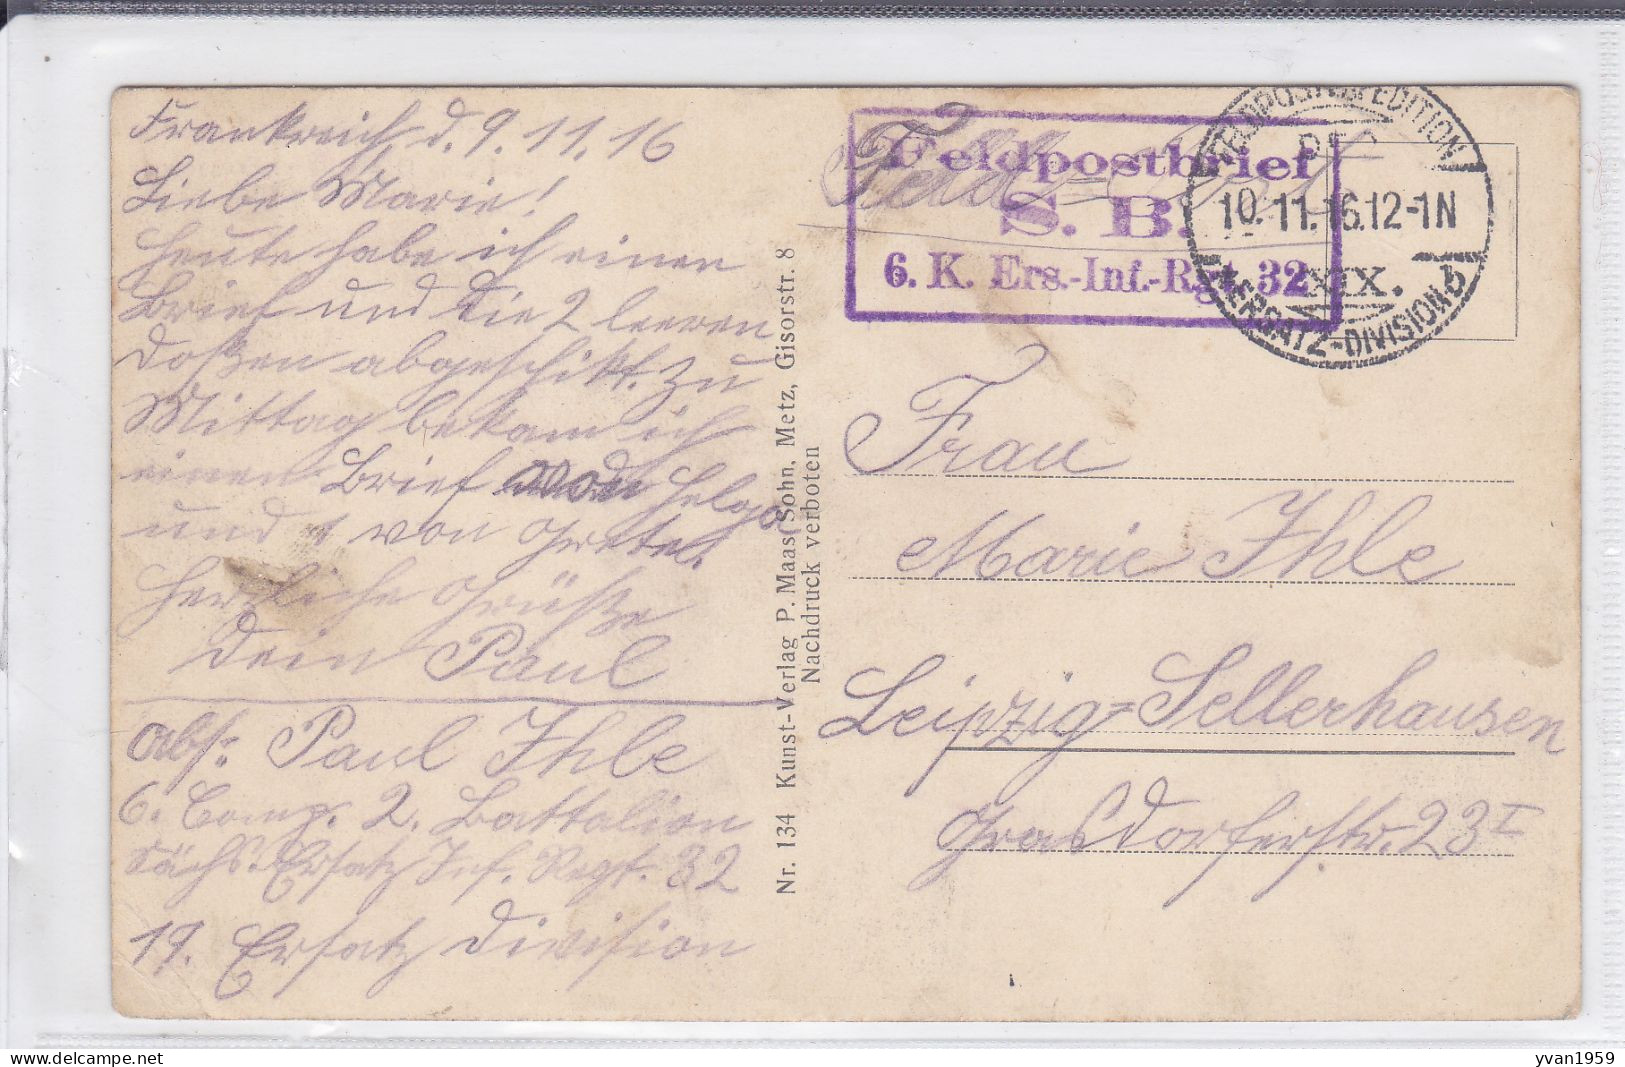 Frankreich d. 9.11.16
Liebe Marie!
Heute habe ich einen
Brief und die 2 leeren
Doßen abgeschikt. Zu
Mittag bekam ich
einen Brief von Helga
und 1 von Gretel.
Herzliche Grüße
Dein Paul
Abs: Paul Ihle
6. Comp. 2. Battalion
Sächs. Ersatz Inf. Regt. 32
19. Ersatz Division
Nr. 134 Kunst-Verlag P. Maas Sohn, Metz, Gisorstr. 8
Nachdruck verboten
Feld-Post
Feldpostbrief
S. B.
6. K. Ers.-Inf.-Rgt. 32
FELDPOSTEXPEDITION
DER
10.11.16.12-1N
XIX.
*ERSATZ-DIVISION b
Frau
Marie Ihle
Leipzig=Sellerhausen
Grasdorferstr. 23 I
yvan1959